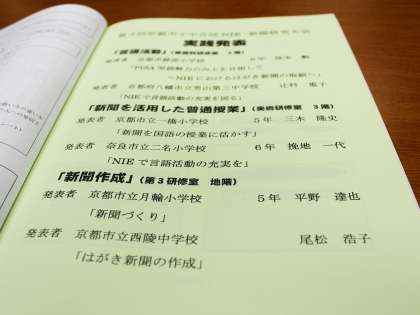 実践発表
「言語活動」
発表者 京都市 小学校 6年
「PISA型読解力の向上を目指して
～NIEにおけるはがき新聞の取組～」
発表者 京都府八幡市立男山第三中学校 辻村 重子
「NIEで言語活動の充実を図る」
「新聞を活用した普通授業」(美術研修室 3階)
発表者 京都市立一橋小学校 5年 三木 隆史
「新聞を国語の授業に活かす」
発表者 奈良市立二名小学校 6年 挽地 一代
「NIEで言語活動の充実を」
「新聞作成」(第3研修室 地階)
発表者 京都市立月輪小学校 5年 平野 達也
「新聞づくり」
発表者 京都市立西陵中学校 尾松 浩子
「はがき新聞の作成」